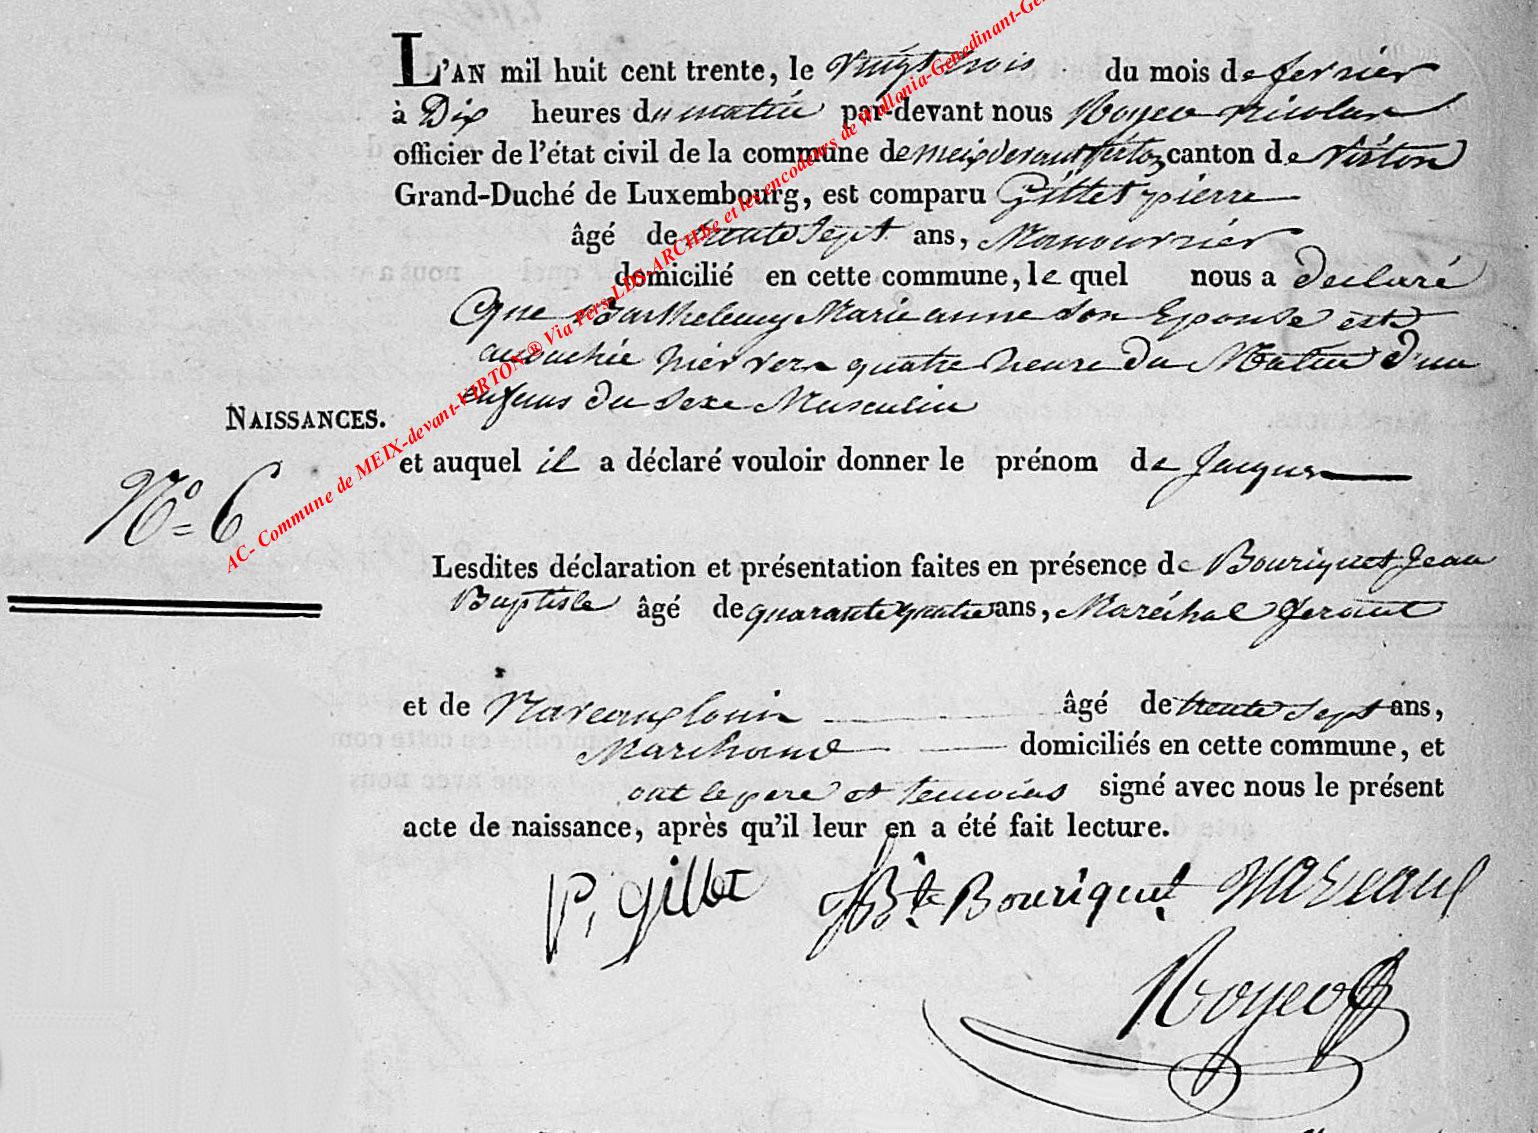 L'AN mil huit cent trente, le vingt trois du mois de fevrier
à Dix heures du matin par-devant nous Royer Nicolas
officier de l'état civil de la commune de meix devant virton canton de Virton
Grand-Duché de Luxembourg, est comparu Gillet pierre
âgé de trente sept ans, Manouvrier
domicilié en cette commune, le quel nous a declaré
Que Barthelemy Marie anne son Epouse est
accouchée hier vers quatre heure du Matin d'un
enfans du sexe Masculin
NAISSANCES.
et auquel il a déclaré vouloir donner le prénom de Jacques
N° 6
Lesdites déclaration et présentation faites en présence de Bouriquet Jean
Baptiste âgé de quarante quatre ans, Maréchal ferant
et de Marcaux louis âgé de trente sept ans,
Marchand domiciliés en cette commune, et
ont le pere et temoins signé avec nous le présent
acte de naissance, après qu'il leur en a été fait lecture.
P, gillet JBte Bouriquet
Royer
AC- Commune de MEIX-devant-VIRTON® Via Pers LDS-ARCH.be et les encodeurs de Wallonia-Genedinant-Ge